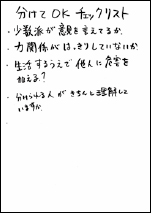 分けてOKチェックリスト
・少数派が意見を言えてるか、
・力関係がはっきりしていないか
・生活するうえで他人に危害を
加える?
・分けられる人がきちんと理解して
いますか